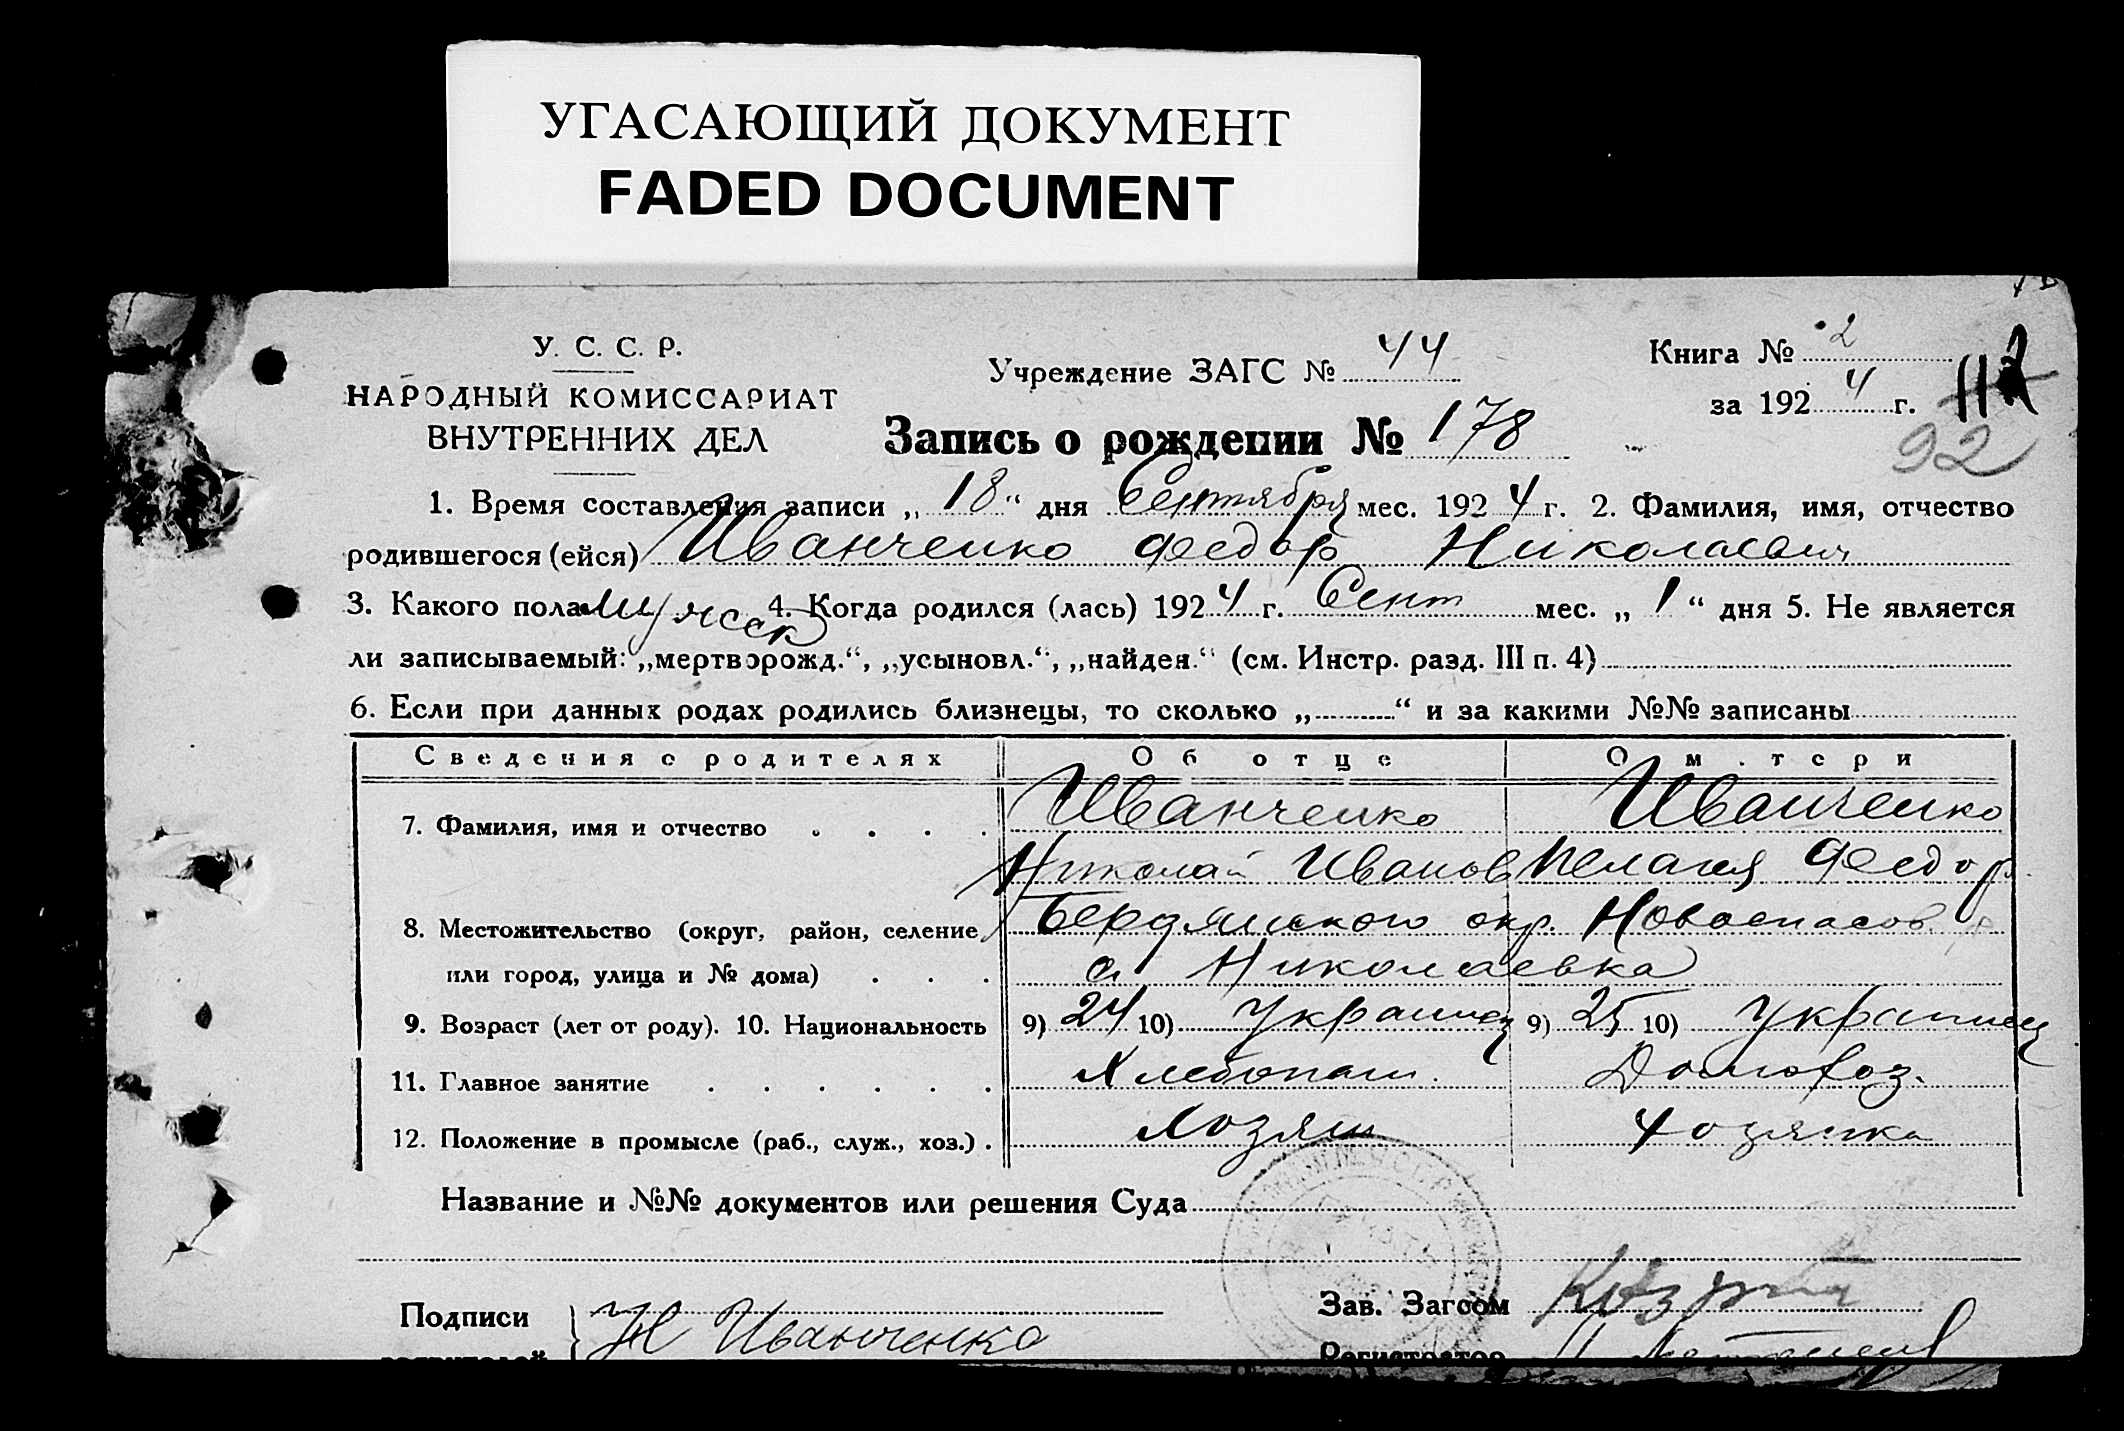 УГАСАЮЩИЙ ДОКУМЕНТ
FADED DOCUMENT
У. С. С. Р.
НАРОДНЫЙ КОМИССАРИАТ
ВНУТРЕННИХ ДЕЛ
Учреждение ЗАГС № 44
Книга № 2
за 1924 г.
112
92
Запись о рождении № 178
1. Время составления записи „18“ дня Сентября мес. 1924 г. 2. Фамилия, имя, отчество
родившегося (ейся) Иванченко Федор Николаевич
3. Какого пола мужск 4. Когда родился (лась) 1924 г. Сент мес. „1“ дня 5. Не является
ли записываемый: „мертворожд.“, „усыновл.“, „найден.“ (см. Инстр. разд. III п. 4)
6. Если при данных родах родились близнецы, то сколько „ “ и за какими №№ записаны
Сведения о родителях Об отце О м.тери
7. Фамилия, имя и отчество Иванченко Иванченко
Николай Иванов Пелагея Федор.
8. Местожительство (округ, район, селение Бердянского окр. Новоспасов. р
или город, улица и № дома) с. Николаевка
9. Возраст (лет от роду). 10. Национальность 9) 24 10) Украинец 9) 25 10) Украинец
11. Главное занятие Хлебопаш. Домохоз.
12. Положение в промысле (раб., служ., хоз.) Хозяин Хозяйка
Название и №№ документов или решения Суда
Подписи
родителей
Н Иванченко
Зав. Загсом
Регистратор